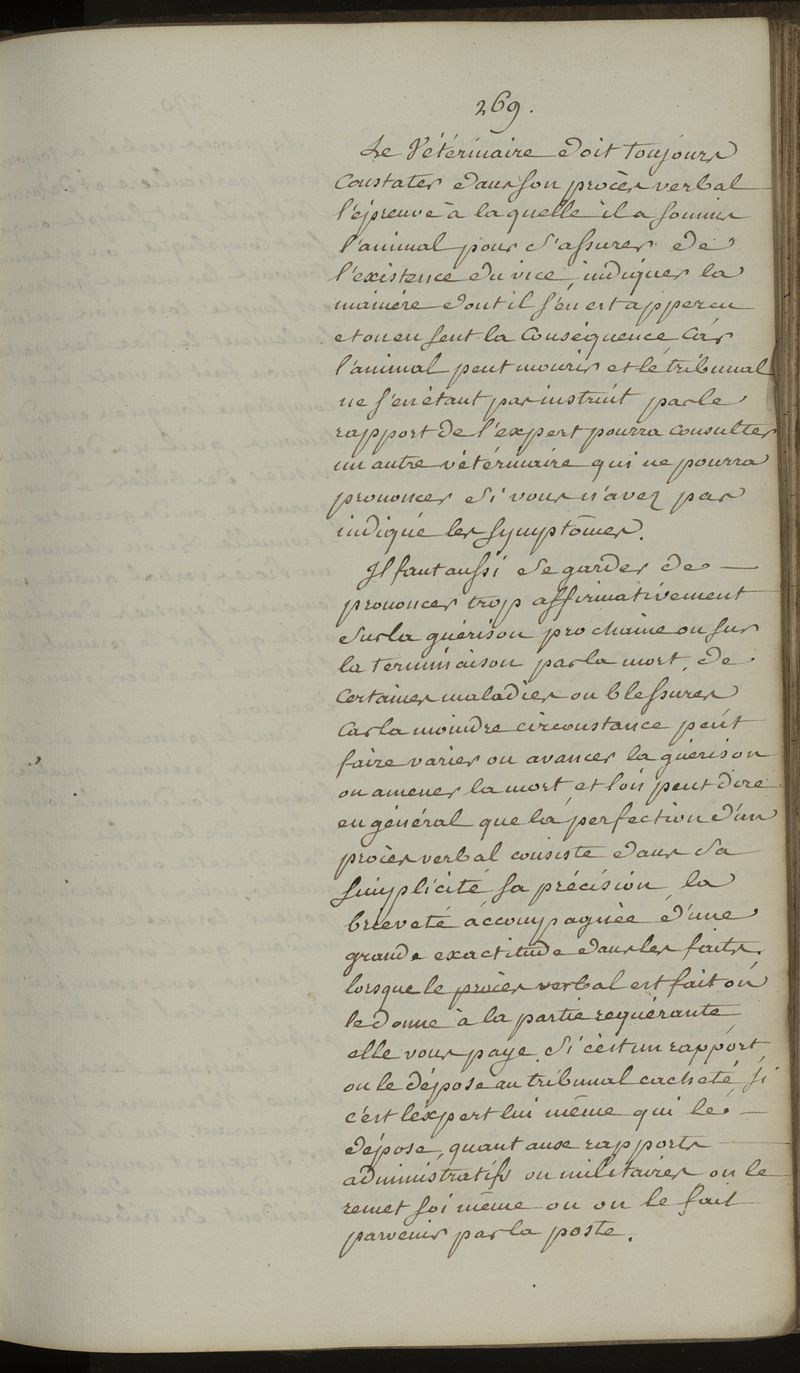 269.
Le Vétérinaire doit toujours
Constater dans son procès verbal
l'épreuve à laquelle il a soumis
l'animal pour s'assurer de
l'existence du vice, indiquer la
manière dont il s'en est apperçu
et on en sent la Conséquence Car
l'animal peut mourir et le tribunal
ne s'en étant pas instruit par le
rapport de l'expert pourra consulter
un autre vétérinaire qui ne pourra
prononcer si vous n'avez pas
indiqué les symptômes.
Il faut aussi se garder de —
prononcer trop affirmativement
sur la guérison prochaine ou sur
la terminaison par la mort, de
Certaines maladies ou blessures
Car la moindre circonstance peut
faire varier ou avancer la guérison
ou amener la mort, et l'on peut dire
en général que la perfection d'un
procès verbal consiste dans sa
simplicité sa précision, la
brieveté accompagnée d'une
grande exactitude dans les faits.
lorsque le procès verbal est fait on
le donne à la partie requérante,
elle vous paye, si c'est un rapport,
on le dépose au tribunal cacheté, si
c'est l'expert lui même qui le —
dépose, quant aux rapports
administratifs ou militaires on le
remet soi même ou on le fait
parvenir par la poste.